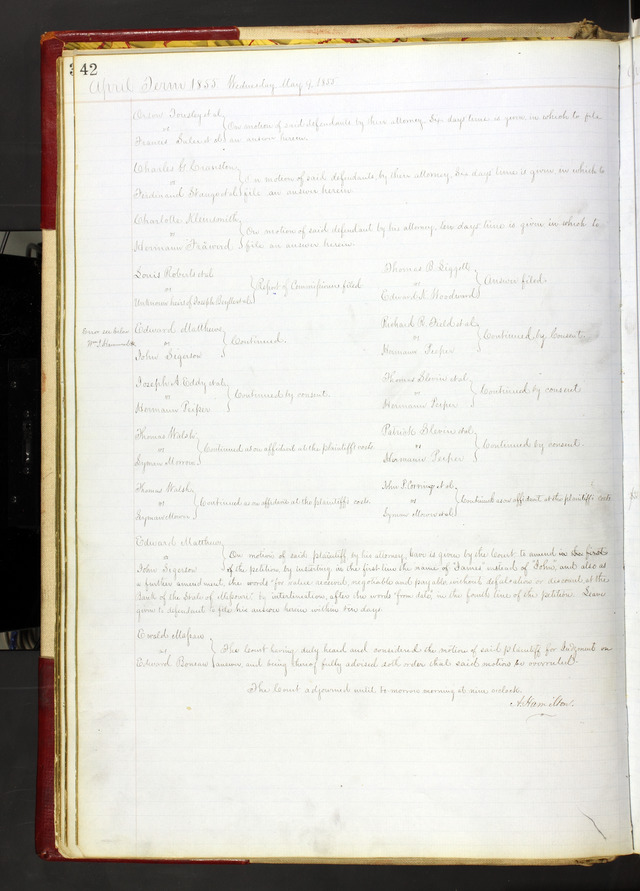 42
April Term 1855 Wednesday May 4, 1855
Orson Tousley et al
vs
On motion of said defendants by their attorney, six days time is given in which to file
an answer herein
Charles G. Cranston
vs
On motion of said defendants, by their attorney, six days time is given in which to
Ferdinand et al file an answer herein
Charlotte Kleinsmith
vs
On motion of said defendant by his attorney, ten days time is given in which to
Hermann file an answer herein
Louis Roberts et al
vs
Report of Commissioners filed
Unknown heirs of Joseph et al
Thomas B.
vs
Answer filed.
Edward A. Woodward
Edward Matthews
vs
Continued.
John Sigerson
Richard R. Field et al
vs
Continued by Consent.
Hermann Peiper
Joseph A. Eddy et al
vs
Continued by consent.
Hermann Peiper
Thomas Slevin et al
vs
Continued by consent
Hermann Peiper
Thomas Walsh
vs
Continued as on affidavit at the plaintiffs costs
Lyman Morrow
Patrick Slevin et al
vs
Continued by consent
Hermann Peiper
Thomas Walsh
vs
Continued as on affidavit at the plaintiffs costs
Lyman Morrow
et al
vs
Continued as on affidavit at the plaintiffs costs
Lyman Morrow et al
Edward Matthews
vs
On motion of said plaintiff by his attorney, leave is given by the Court to amend in the first
John Sigerson of the petition, by inserting in the first line the name of "James" instead of "John," and also as
a further amendment, the words "for value received, negotiable and payable without defalcation or discount, at the
Bank of the State of Missouri" by interlineation, after the words "from date," in the fourth line of the petition. Leave
given to defendants to file his answer herein within ten days
Ewald
vs
The Court having duly heard and considered the motion of said plaintiff for Judgment on
Edward answer, and being thereof fully advised doth order that said motion be overruled.
The Court adjourned until to morrow morning at nine oclock.
A. Hamilton.